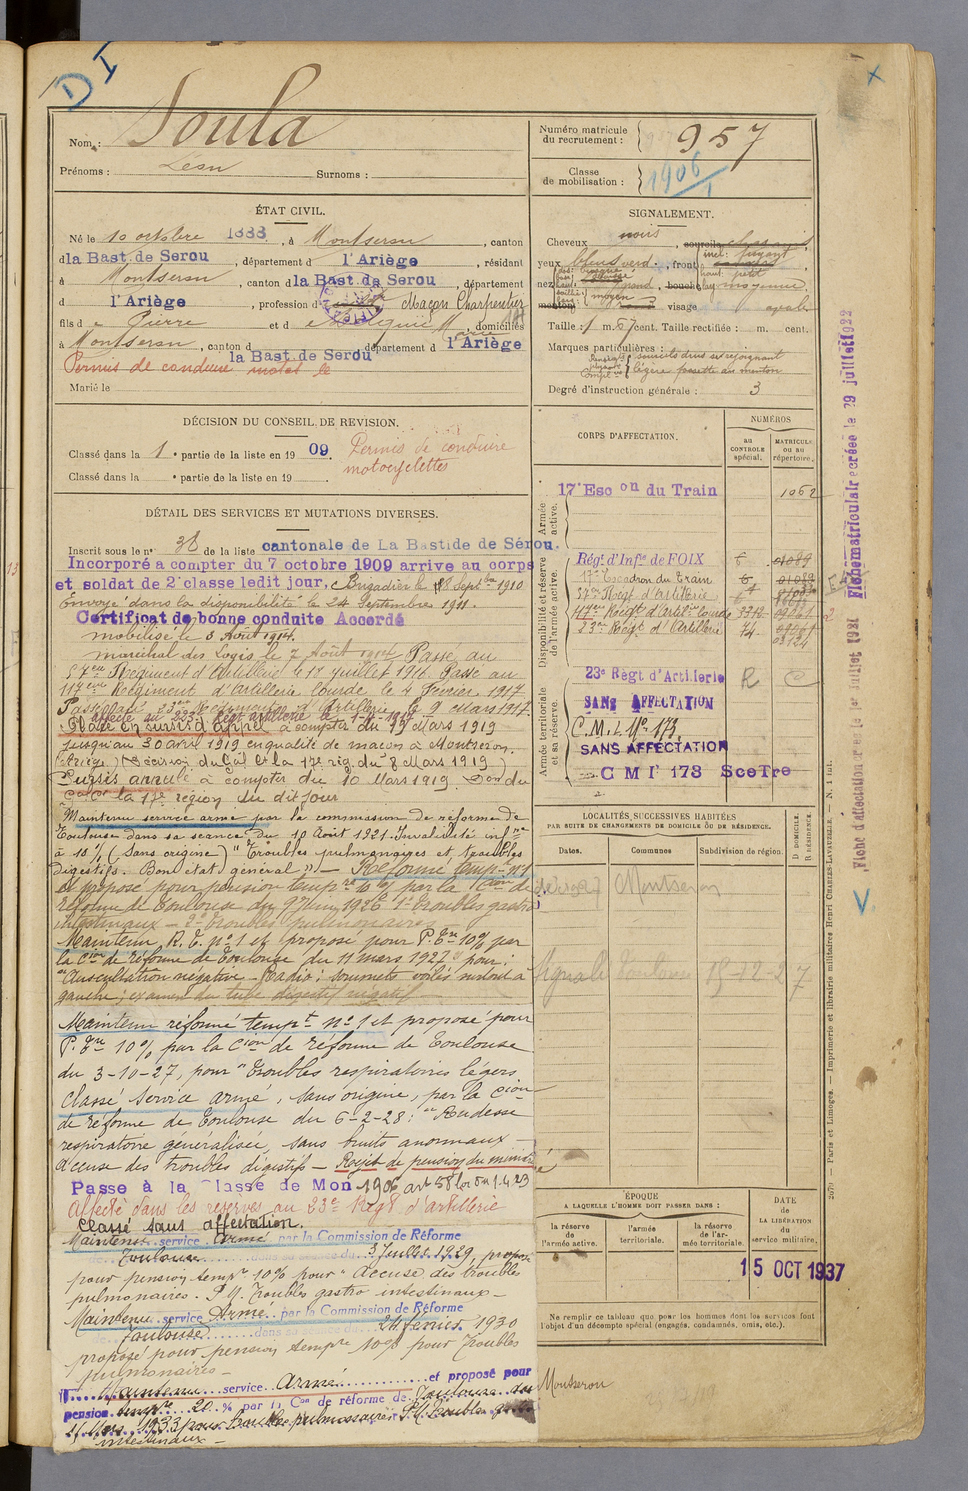 D I
Nom : Soula
Prénoms : Léon Surnoms :
Numéro matricule du recrutement : 957
Classe de mobilisation : 1906
ÉTAT CIVIL.
Né le 10 octobre 1888, à Montseron, canton
d la Bast. de Serou, département d l'Ariège, résidant
à Montseron, canton d la Bast. de Serou, département
d l'Ariège, profession d Maçon Charpentier
fils de Pierre et de Marie, domiciliés
à Montseron, canton d la Bast. de Serou département d l'Ariège
Permis de conduire
Marié le
SIGNALEMENT.
Cheveux noirs
yeux bleus verd. , front incl. fuyant
haut. petit
nez
moyen visage ovale
Taille : 1 m. 67 cent. Taille rectifiée : m. cent.
Marques particulières :
sourcils drus se rejoignant
légère fossette au menton
Degré d'instruction générale : 3
DÉCISION DU CONSEIL DE REVISION.
Classé dans la 1e partie de la liste en 1909. Permis de conduire
motocyclettes
Classé dans la e partie de la liste en 19
DÉTAIL DES SERVICES ET MUTATIONS DIVERSES.
Inscrit sous le n° 38 de la liste cantonale de La Bastide de Sérou.
Incorporé a compter du 7 octobre 1909 arrive au corps
et soldat de 2e classe ledit jour, Brigadier le Septbre 1910
Envoyé dans la disponibilité le 24 Septembre 1911.
Certificat de bonne conduite Accordé
mobilisé le 3 Août 1914
maréchal des Logis le 2 Août Passé au
57e Régiment d'Artillerie le 1er juillet 1916 Passé au
117e Régiment d'Artillerie lourde le 4 Février 1917
Passé au 23e Régiment d'Artillerie le 9 Mars 1917.
affecté au 223e Régt artillerie le 1-4-1917
Placé en sursis d'appel à compter du 19 Mars 1919
jusqu'au 30 avril 1919 en qualité de maçon à Montseron.
(Ariège) (Décision du Gal Ct la 17e rég. du 8 Mars 1919)
Sursis annulé à compter du 10 Mars 1919 Don du
la 17e région du dit jour
Maintenu service armé par la commission de réforme de
Toulouse dans sa séance du 10 Août 1921. Invalidité infre
à 10% (Sans origine) "Troubles pulmonaires et troubles
digestifs. Bon état général" — Réformé tempre n°1
et proposé pour pension tempre 10% par la Cion de
réforme de Toulouse du 9 1926 1° troubles gastro
intestinaux - 2° troubles pulmonaires
Maintenu R.T. n°1 et proposé pour P. Tre 10% par
la Cion de réforme de Toulouse du 11 mars 1927 pour :
"Auscultation négative - Radio : sommets voilés surtout à
gauche ; examen du tube digestif négatif
Maintenu réformé tempt n°1 et proposé pour
P. Tre 10% par la Cion de réforme de Toulouse
du 3-10-27, pour "Troubles respiratoires légers
Classé service armé, sans origine, par la Cion
de réforme de Toulouse du 6-2-28 : "Rudesse
respiratoire généralisée, sans bruits anormaux —
Accuse des troubles digestifs — Rejet de pension du
Passe à la Classe de Mon 1906 art 58 loi du 1.4.23
Affecté dans les réserves au 23e Régt d'artillerie
Classé sans affectation.
Maintenu service armé par la Commission de Réforme
de Toulouse dans sa séance du 3 Juillet 1929, proposé
pour pension tempre 10% pour "Accuse des troubles
pulmonaires. P.M. Troubles gastro intestinaux —
Maintenu service Armé par la Commission de Réforme
de Toulouse dans sa séance du 24 février 1930
proposé pour pension tempre 10% pour Troubles
pulmonaires —
Maintenu service Armé et proposé pour
pension tempre 20 % par la Con de réforme de Toulouse du
11 Mars 1933 pour troubles pulmonaires P.M. Troubles gastro
intestinaux —
CORPS D'AFFECTATION.
NUMÉROS
au CONTROLE spécial.
MATRICULE ou au répertoire.
Armée active.
17e Escon du Train 1062
Disponibilité et réserve de l'armée active.
Régt d'Infie de FOIX 6 01089
17e Escadron du Train 6 01089
57e Régt d'Artillerie
117e Régt d'Artie lourde 3312
23e Régt d'Artillerie 74
Armée territoriale et sa réserve.
23e Régt d'Artillerie R C
SANS AFFECTATION
C.M.I. No 173.
SANS AFFECTATION
C M I' 173 SceTre
LOCALITÉS SUCCESSIVES HABITÉES
PAR SUITE DE CHANGEMENTS DE DOMICILE OU DE RÉSIDENCE.
Dates. Communes Subdivision de région. D DOMICILE. R RÉSIDENCE.
Montseron
Signalé 15-12-27
ÉPOQUE
A LAQUELLE L'HOMME DOIT PASSER DANS :
la réserve de l'armée active.
l'armée territoriale.
la réserve de l'armée territoriale.
DATE DE LA LIBÉRATION du service militaire.
15 OCT 1937
Ne remplir ce tableau que pour les hommes dont les services font
l'objet d'un décompte spécial (engagés, condamnés, omis, etc.).
Montseron
2670 — Paris et Limoges. — Imprimerie et librairie militaires Henri CHARLES-LAVAUZELLE. — N. 1 int.
Fiche matriculaire créée le 29 juillet 1922
Fiche d'affectation créée le 1er Juillet 1921
V.